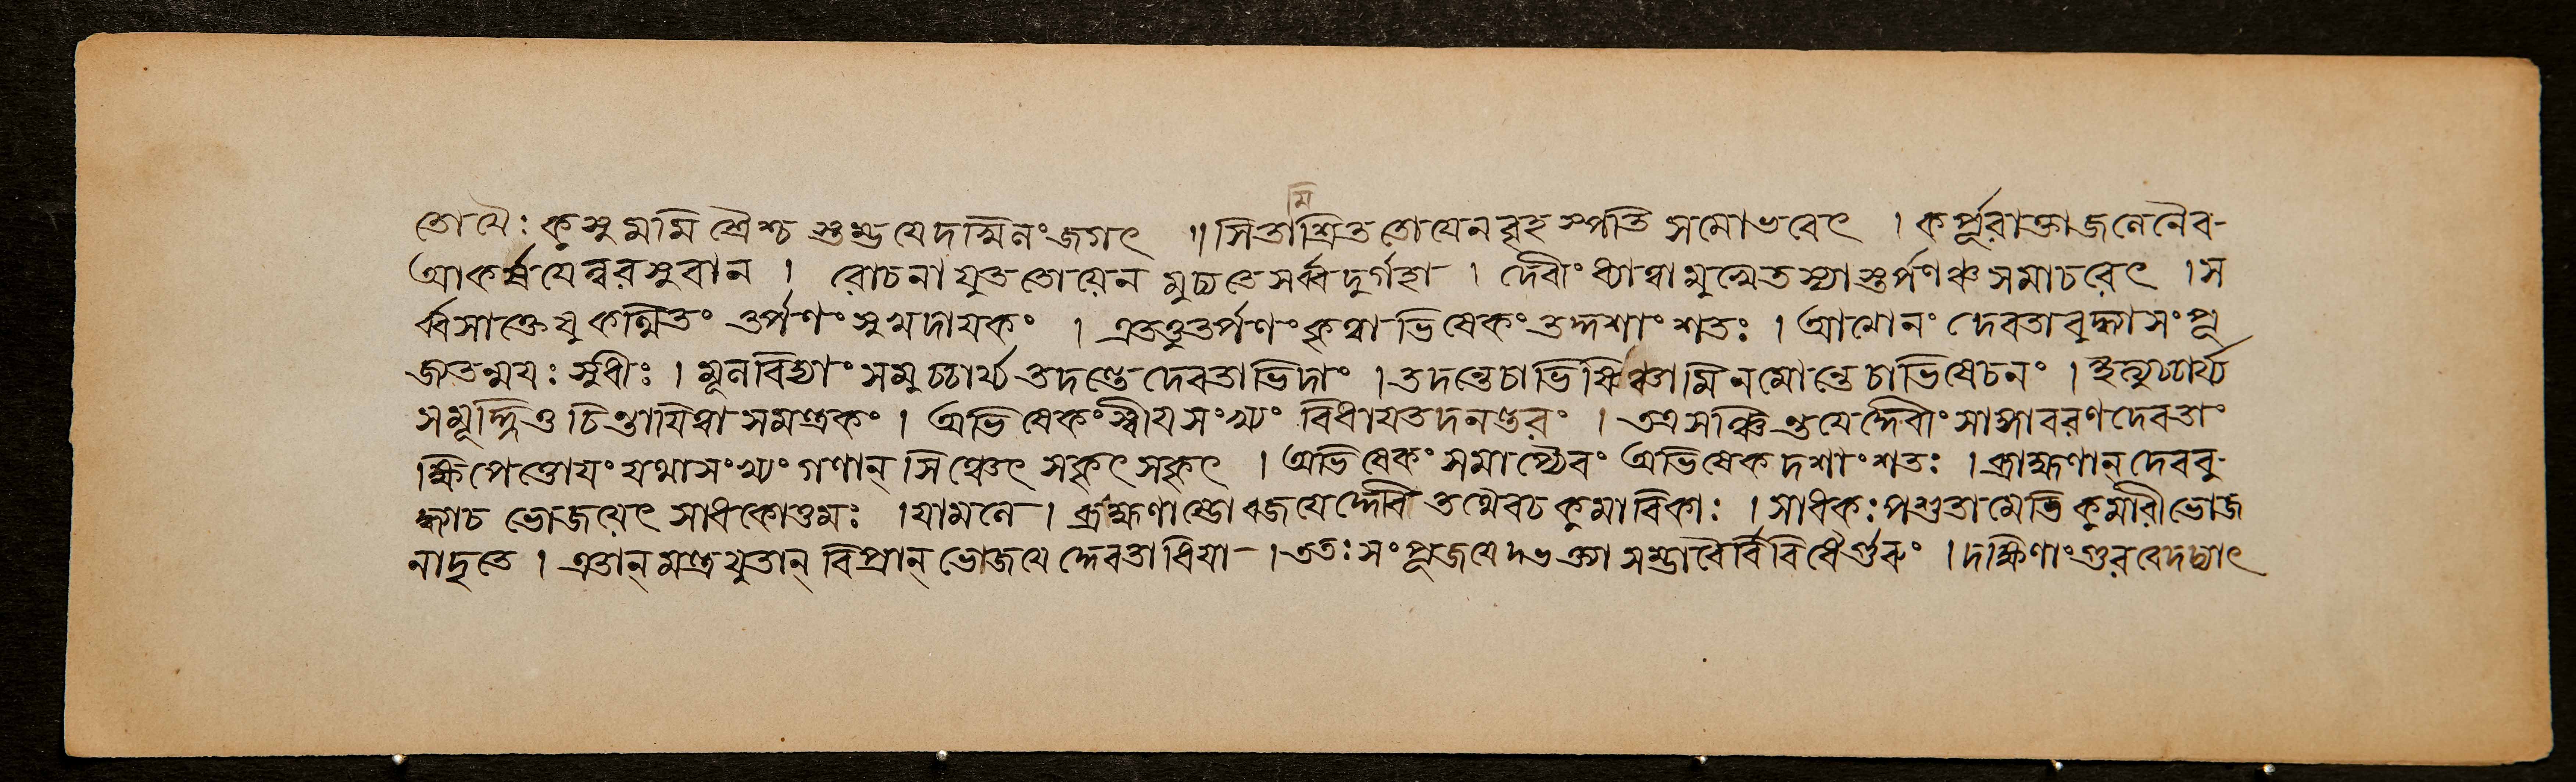 তোযৈঃ কুসুমমিশ্রৈশ্চ স্তম্ভযেদখিলংজগৎ ॥ সিতামিশ্রিততোযেনবৃহস্পতিসমোভবেৎ । কর্পূরাক্তাজলেনৈব-
আকর্ষযেন্নরসুরান । রোচনাযুততোয়েন মুচ্যতেসর্ব্বদুর্গহা । দেবীংধ্যাত্বামুখেতস্যাস্তর্পণঞ্চসমাচরেৎ । স
র্ব্বসাক্তেযুকল্মিতং তর্পণংসুখদাযকং । এতত্তুতর্পণংকৃত্বাভিষেকংতদ্দশাংশতঃ । আত্মানং দেবতাবুদ্ধ্যাসংপূ
জ্যতন্ময়ঃ সুধীঃ । মূলবিদ্যাংসমুচ্চার্য্যতদন্তেদেবতাভিদাং । তদন্তেচাভিষিঞ্চামিনমোন্তেচাভিষেচনং । ইত্যুচ্চার্য্য
সমূর্দ্ধ্নিও চিন্তাযিত্বাসমন্ত্রকং । অভিষেকংস্বীযসংখ্যং বিধাযতদনন্তরং । তত্রসঞ্চিন্তযেদ্দেবীংসাঙ্গাবরণদেবতাং
ক্ষিপেত্তোযংযথাসংখ্যংগণান্ সিঞ্চেৎ সকৃৎ সকৃৎ । অভিষেকংসমাপ্যৈবং অভিষেকদশাংশতঃ । ব্রাহ্মণান্ দেববু-
দ্ধ্যাচ ভোজয়েৎ সাধকোত্তমঃ । যামলে । ব্রাহ্মণান্ভোবজযেদ্দেবি তথৈবচকুমারিকাঃ । সাধকঃপশুতামেতিকুমারীভোজ
নাদৃতে । এতান্ মন্ত্রযুতান্ বিপ্রান্ ভোজযেদ্দেবতাধিযা- । ততঃসংপূজযেদ্ভক্ত্যাসম্ভারৈর্বিবিধৈর্গুরুং । দক্ষিণাংগুরবেদদ্যাৎ